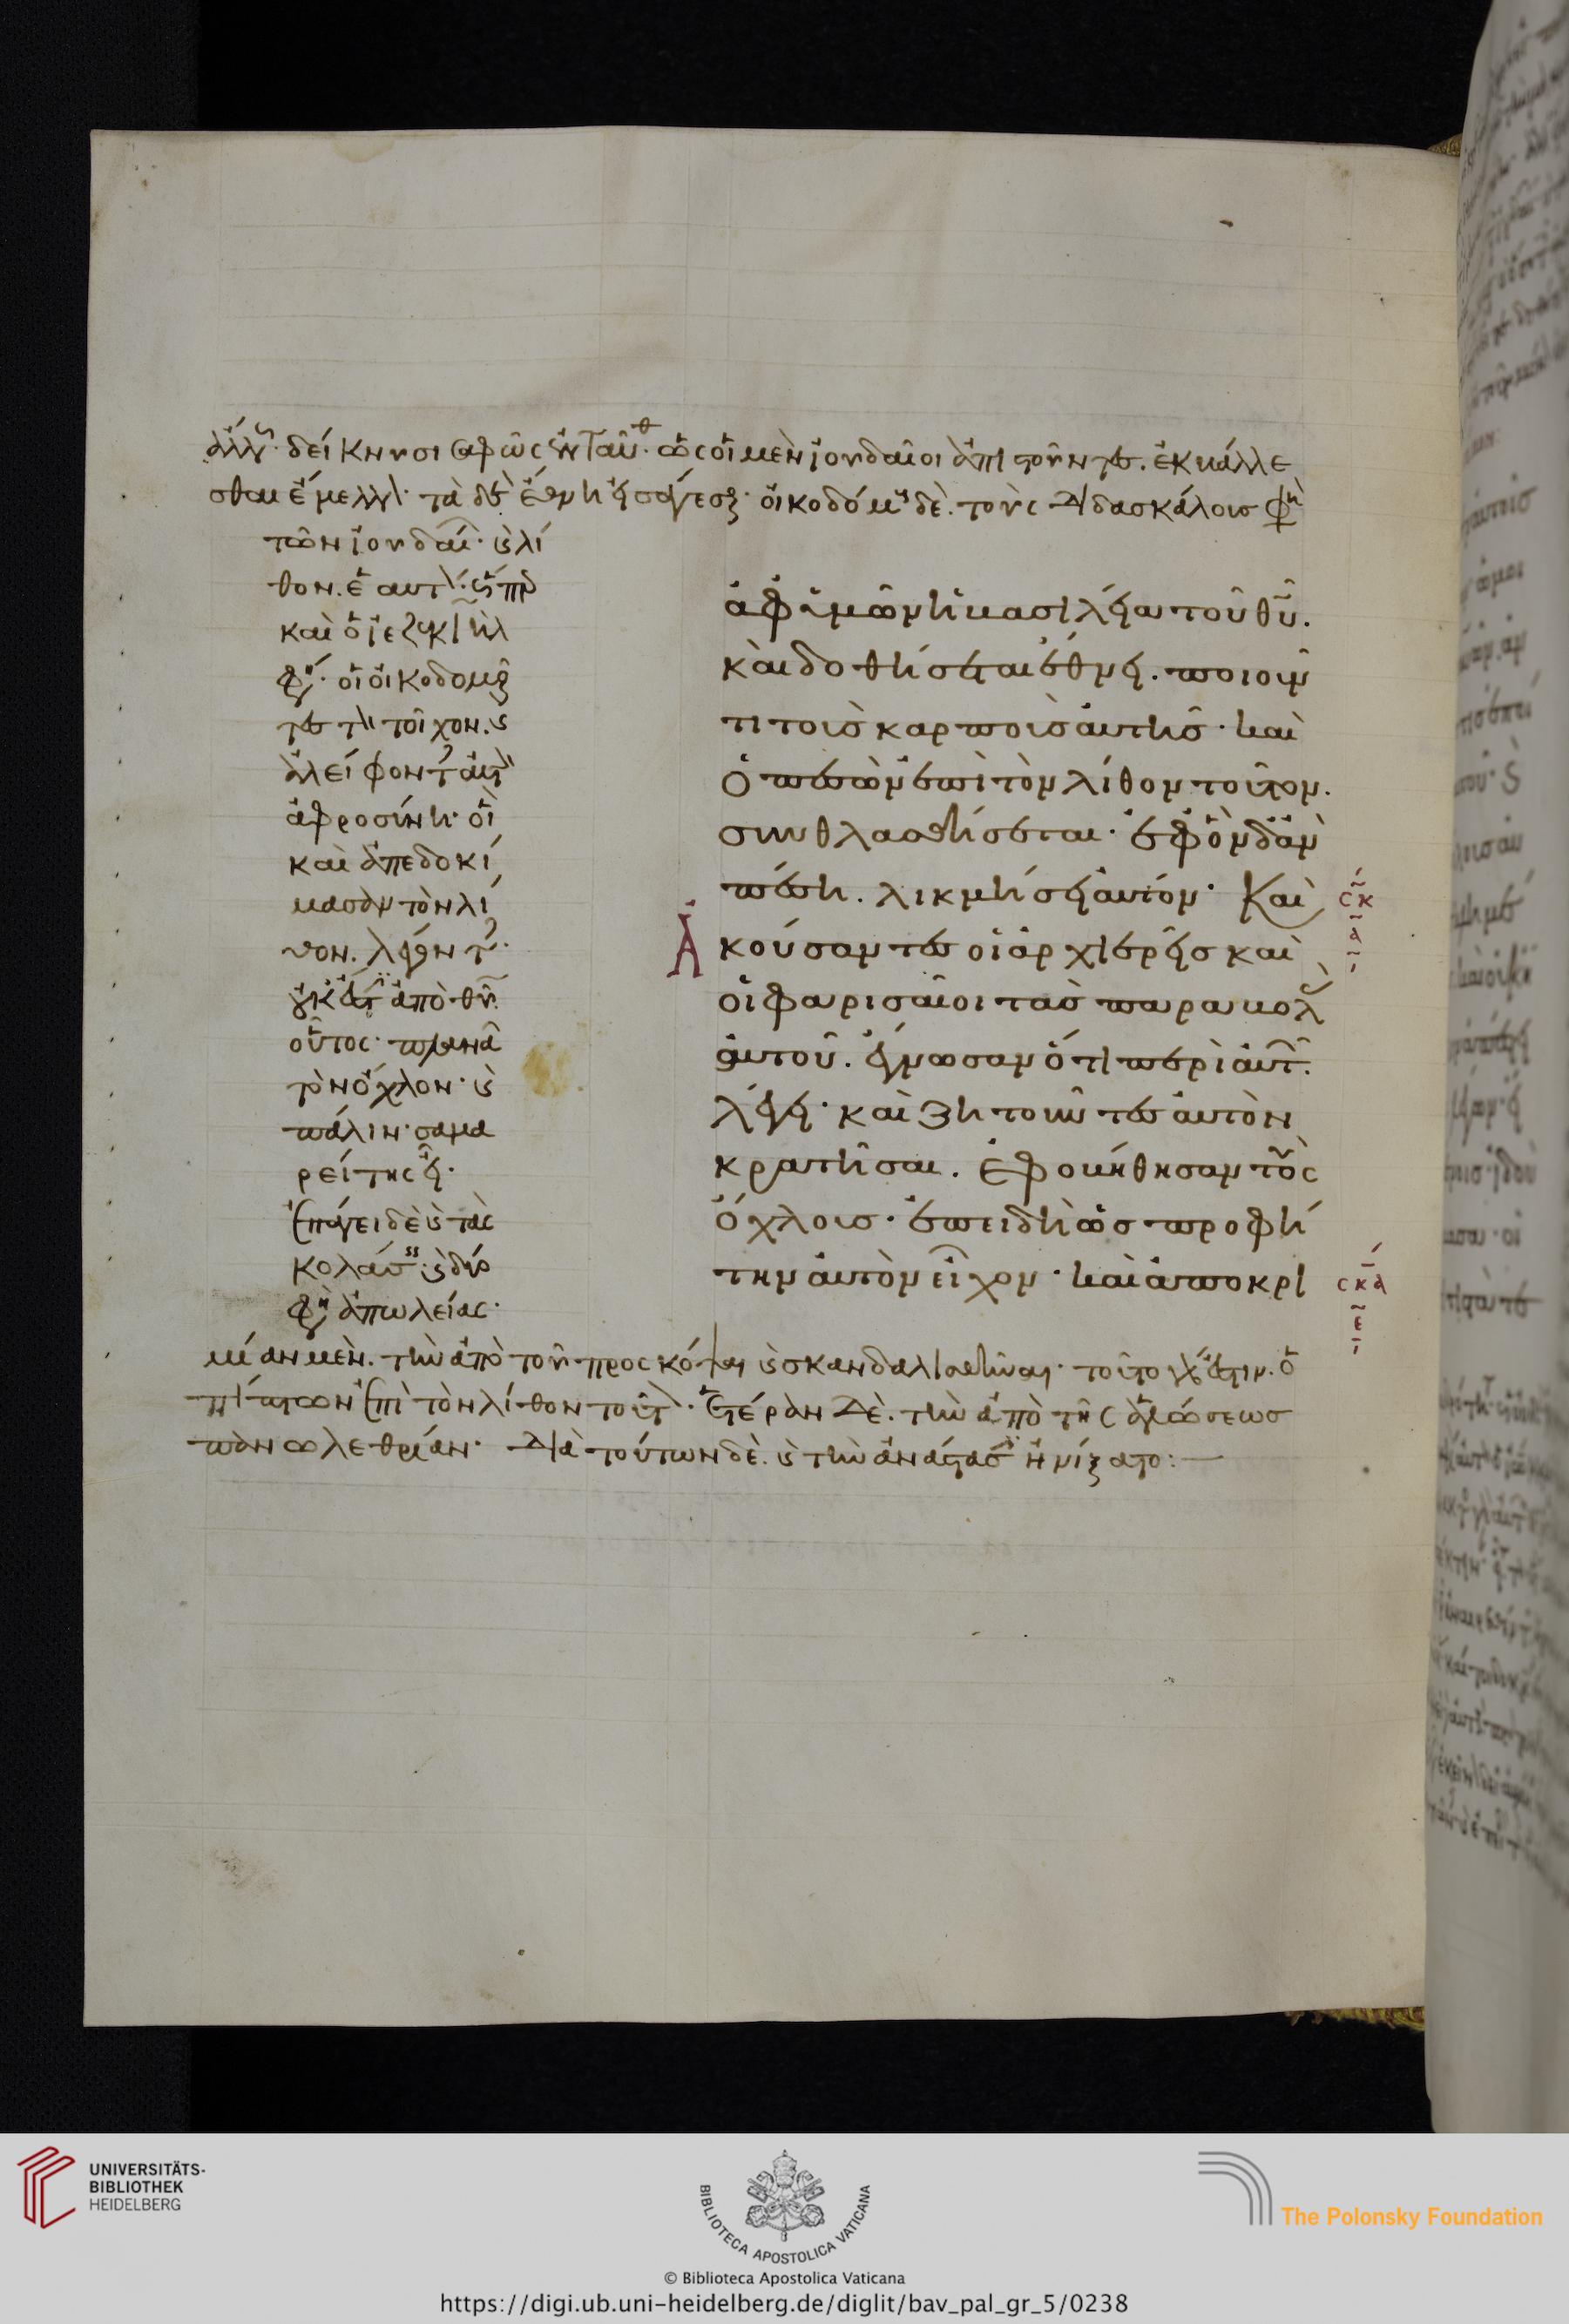 δείκνυσι σαφῶς ὡς οἱ μὲν ἰουδαῖοι ἐκβάλλε
σθαι τὰ δὲ ἔθνη οἰκοδομ δὲ τοὺς διδασκάλους φη
τῶν ἰουδαί λί
θον ἑαυτ
καὶ ὁ ἰεζεκιὴλ
φη οἱ οἰκοδομ
τες τὸν τοῖχον
ἀλείφοντ αὐτ
ἀφροσύνη οἱ
καὶ ἀπεδοκί
μασαν τὸν λί
θον λέγοντ
οὐκ ἔστ ἀπὸ θυ
οὗτος πλανᾶ
τὸν ὄχλον
πάλιν σαμα
ρείτης εἶ
ἐπάγει δὲ τὰς
κολάσ δύο
φη ἀπωλείας
ἀφ ὑμῶν ἡ βασιλεία τοῦ θυ.
καὶ δοθήσεται ἔθνει. ποιοῦν
τι τοὺς καρποὺς αὐτῆς· καὶ
ὁ πεσὼν ἐπὶ τὸν λίθον τοῦτον.
συνθλασθήσεται· ἐφ ὃν δ ἂν
πέση. λικμήσει αὐτόν· Καὶ
ἀκούσαντες οἱ ἀρχιερεῖς καὶ
οἱ φαρισαῖοι τὰς παραβολ
αὐτοῦ. ἔγνωσαν ὅτι περὶ αὐτ.
λέγει· καὶ ζητοῦντες αὐτὸν
κρατῆσαι. ἐφοβήθησαν τοὺς
ὄχλους· ἐπειδὴ ὡς προφή
την αὐτὸν εἶχον· καὶ ἀποκρι
σκ
α
σκα
ε
μίαν μὲν. τὴν ἀπὸ τοῦ προσκόψαι σκανδαλισθῆναι· τοῦτο γάρ ἐστιν. ὁ
πίπτων ἐπὶ τὸν λίθον τοῦτ· ἑτέραν δὲ. τὴν ἀπὸ τῆς ἁλώσεως
πανωλεθρίαν· διὰ τούτων δὲ. τὴν ἀνάστασ ἠνίξατο:—
UNIVERSITÄTS-
BIBLIOTHEK
HEIDELBERG
BIBLIOTECA APOSTOLICA VATICANA
The Polonsky Foundation
© Biblioteca Apostolica Vaticana
https://digi.ub.uni-heidelberg.de/diglit/bav_pal_gr_5/0238